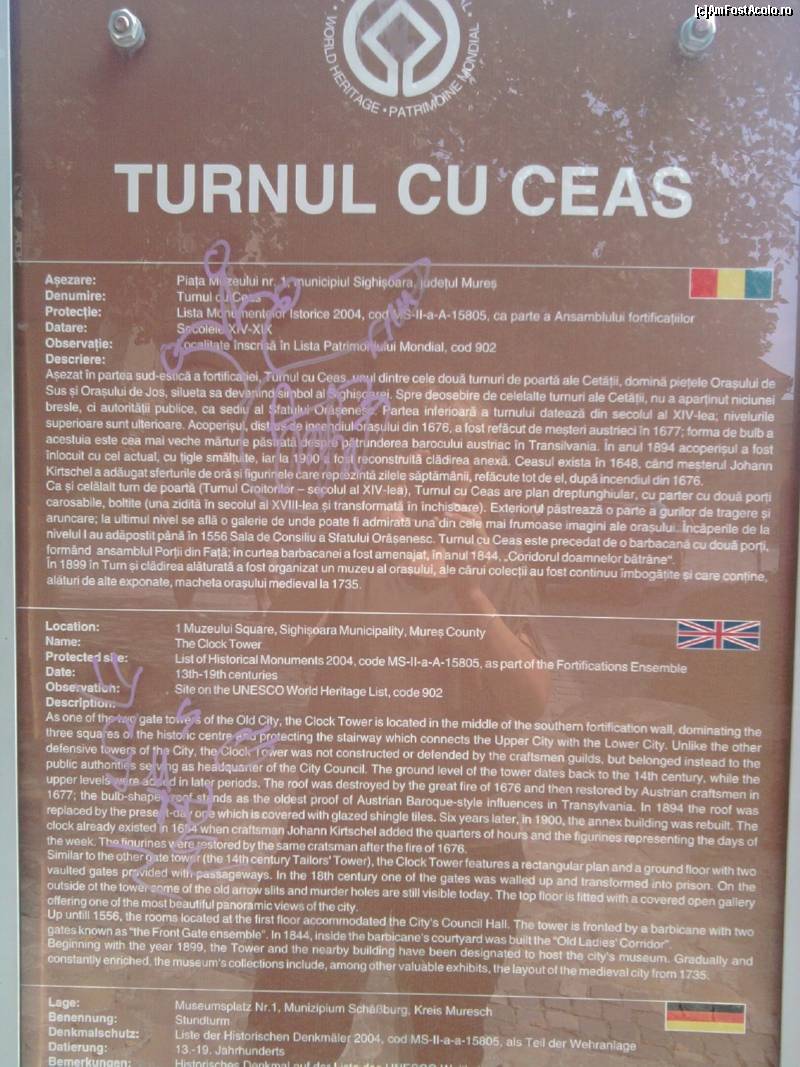 [c]AmFostAcolo.ro
WORLD HERITAGE • PATRIMOINE MONDIAL •
TURNUL CU CEAS
Așezare: Piața Muzeului nr. 1, municipiul Sighișoara, județul Mureș
Denumire: Turnul cu Ceas
Protecție: Lista Monumentelor Istorice 2004, cod MS-II-a-A-15805, ca parte a Ansamblului fortificațiilor
Datare: Secolele XIV-XIX
Observație: Localitate înscrisă în Lista Patrimoniului Mondial, cod 902
Descriere:
Așezat în partea sud-estică a fortificației, Turnul cu Ceas, unul dintre cele două turnuri de poartă ale Cetății, domină piețele Orașului de
Sus și Orașului de Jos, silueta sa devenind simbol al Sighișoarei. Spre deosebire de celelalte turnuri ale Cetății, nu a aparținut niciunei
bresle, ci autorității publice, ca sediu al Sfatului Orășenesc. Partea inferioară a turnului datează din secolul al XIV-lea; nivelurile
superioare sunt ulterioare. Acoperișul, distrus de incendiul orașului din 1676, a fost refăcut de meșteri austrieci în 1677; forma de bulb a
acestuia este cea mai veche mărturie păstrată despre pătrunderea barocului austriac în Transilvania. În anul 1894 acoperișul a fost
înlocuit cu cel actual, cu țigle smălțuite, iar la 1900 a fost reconstruită clădirea anexă. Ceasul exista în 1648, când meșterul Johann
Kirtschel a adăugat sferturile de oră și figurinele care reprezintă zilele săptămânii, refăcute tot de el, după incendiul din 1676.
Ca și celălalt turn de poartă (Turnul Croitorilor – secolul al XIV-lea), Turnul cu Ceas are plan dreptunghiular, cu parter cu două porți
carosabile, boltite (una zidită în secolul al XVIII-lea și transformată în închisoare). Exteriorul păstrează o parte a gurilor de tragere și
aruncare; la ultimul nivel se află o galerie de unde poate fi admirată una din cele mai frumoase imagini ale orașului. Încăperile de la
nivelul I au adăpostit până în 1556 Sala de Consiliu a Sfatului Orășenesc. Turnul cu Ceas este precedat de o barbacană cu două porți,
formând ansamblul Porții din Față; în curtea barbacanei a fost amenajat, în anul 1844, „Coridorul doamnelor bătrâne“.
În 1899 în Turn și clădirea alăturată a fost organizat un muzeu al orașului, ale cărui colecții au fost continuu îmbogățite și care conține,
alături de alte exponate, macheta orașului medieval la 1735.
Location: 1 Muzeului Square, Sighișoara Municipality, Mureș County
Name: The Clock Tower
Protected site: List of Historical Monuments 2004, code MS-II-a-A-15805, as part of the Fortifications Ensemble
Date: 13th-19th centuries
Observation: Site on the UNESCO World Heritage List, code 902
Description:
As one of the two gate towers of the Old City, the Clock Tower is located in the middle of the southern fortification wall, dominating the
three squares of the historic centre and protecting the stairway which connects the Upper City with the Lower City. Unlike the other
defensive towers of the City, the Clock Tower was not constructed or defended by the craftsmen guilds, but belonged instead to the
public authorities serving as headquarter of the City Council. The ground level of the tower dates back to the 14th century, while the
upper levels were added in later periods. The roof was destroyed by the great fire of 1676 and then restored by Austrian craftsmen in
1677; the bulb-shaped roof stands as the oldest proof of Austrian Baroque-style influences in Transylvania. In 1894 the roof was
replaced by the present-day one which is covered with glazed shingle tiles. Six years later, in 1900, the annex building was rebuilt. The
clock already existed in 1654 when craftsman Johann Kirtschel added the quarters of hours and the figurines representing the days of
the week. The figurines were restored by the same cratsman after the fire of 1676.
Similar to the other gate tower (the 14th century Tailors' Tower), the Clock Tower features a rectangular plan and a ground floor with two
vaulted gates provided with passageways. In the 18th century one of the gates was walled up and transformed into prison. On the
outside of the tower some of the old arrow slits and murder holes are still visible today. The top floor is fitted with a covered open gallery
offering one of the most beautiful panoramic views of the city.
Up untill 1556, the rooms located at the first floor accommodated the City's Council Hall. The tower is fronted by a barbicane with two
gates known as "the Front Gate ensemble". In 1844, inside the barbicane's courtyard was built the "Old Ladies' Corridor".
Beginning with the year 1899, the Tower and the nearby building have been designated to host the city's museum. Gradually and
constantly enriched, the museum's collections include, among other valuable exhibits, the layout of the medieval city from 1735.
Lage: Museumsplatz Nr.1, Munizipium Schäßburg, Kreis Muresch
Benennung: Stundturm
Denkmalschutz: Liste der Historischen Denkmäler 2004, cod MS-II-a-a-15805, als Teil der Wehranlage
Datierung: 13.-19. Jahrhunderts
Bemerkungen: Historisches Denkmal auf der Liste des UNESCO